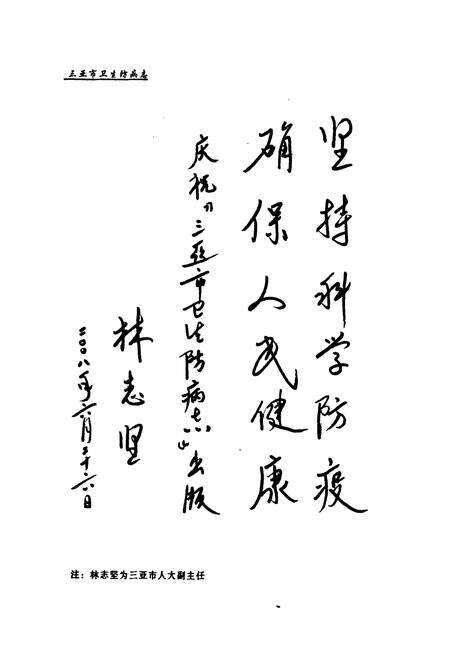 三亚市卫生防病志
坚持科学防疫
确保人民健康
庆祝《三亚市卫生防病志》出版
林志坚
二〇〇八年六月二十六日
注：林志坚为三亚市人大副主任